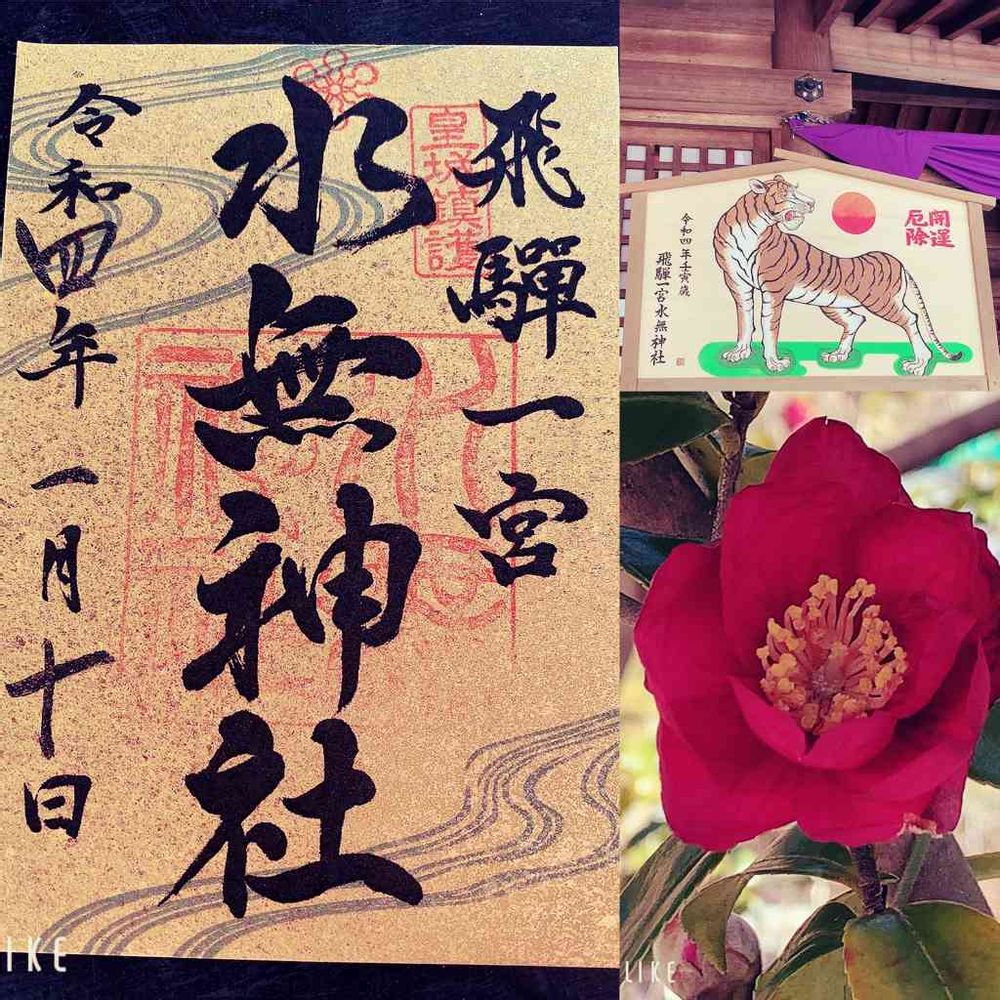 飛驒一宮
皇城鎮護
水無神社
令和四年一月十日
開運
厄除
令和四年壬寅歳
飛驒一宮水無神社
IKE
LIKE